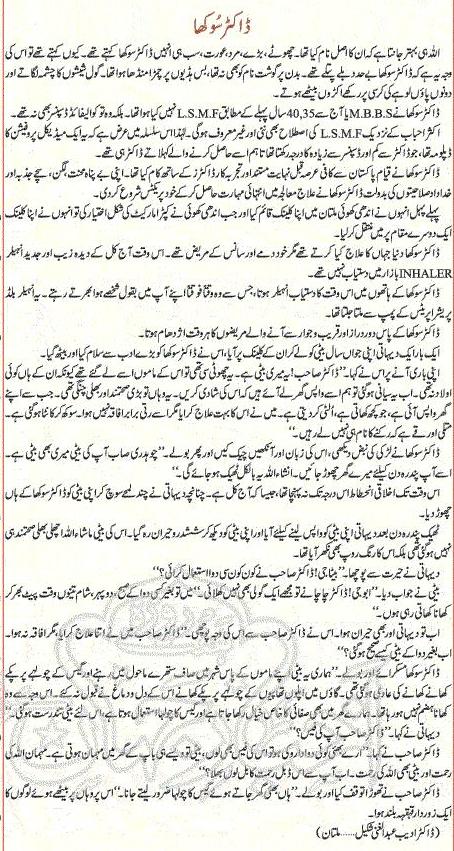 ڈاکٹر سُوکھا
اللہ ہی بہتر جانتا ہے کہ ان کا اصل نام کیا تھا۔ چھوٹے، بڑے، مرد، عورت، سب ہی انہیں ڈاکٹر سوکھا کہتے تھے۔ کیوں کہتے تھے تو اس کی
وجہ یہ ہے کہ ڈاکٹر سوکھا بے حد دبلے پتلے تھے۔ بدن پر گوشت نام کو بھی نہ تھا، بس ہڈیوں پر چمڑا منڈھا ہوا تھا۔ گول شیشوں کا چشمہ لگاتے اور
دونوں پاؤں لوہے کی کرسی پر رکھے اکڑوں بیٹھے ہوتے۔
ڈاکٹر سوکھا M.B.B.S یا آج سے 40,35 سال پہلے کے مطابق L.S.M.F نہیں کیا ہوا تھا۔ بلکہ وہ تو کوالیفائڈ ڈسپنسر بھی نہ تھے۔
اکثر احباب کے نزدیک L.S.M.F کی اصطلاح بھی نئی اور غیر معروف ہوگی۔ لہٰذا اس سلسلہ میں عرض ہے کہ یہ ایک میڈیکل پروفیشن کا
ڈپلومہ تھا، جو ڈاکٹر سے کم اور ڈسپنسر سے زیادہ کا درجہ رکھتا تھا تاہم اسے حاصل کرنے والے کہلاتے ڈاکٹر ہی تھے۔
ڈاکٹر سوکھا نے قیام پاکستان سے کافی عرصہ قبل نہایت مستند اور تجربہ کار ڈاکٹرز کے ساتھ کام کیا تھا۔ اپنی بے پناہ محنت، لگن، سچے جذبہ اور
خداداد صلاحیتوں کی بدولت ڈاکٹر سوکھا نے علاج معالجہ میں انتہائی مہارت حاصل کر کے خود پریکٹس شروع کر دی۔
پہلے پہل انہوں نے اندھی کھوئی ملتان میں اپنا کلینک قائم کیا اور جب اندھی کھوئی نے کپڑا مارکیٹ کی شکل اختیار کی تو انہوں نے اپنا کلینک
ایک دوسرے مقام پر منتقل کر لیا۔
ڈاکٹر سوکھا دنیا جہاں کا علاج کیا کرتے تھے مگر خود دمے اور سانس کے مریض تھے۔ اس وقت آج کل کے دیدہ زیب اور جدید انہیلر
INHALER بازار میں دستیاب نہیں تھے۔
ڈاکٹر سوکھا کے ہاتھوں میں اس وقت کا دستیاب انہیلر ہوتا، جس سے وہ وقتاً فوقتاً اپنے آپ میں بقول شخصے ہوا بھرتے رہتے۔ یہ انہیلر بلڈ
پریشر اپریٹس کے پمپ سے ملتا جلتا تھا۔
ڈاکٹر سوکھا کے پاس دور دراز اور قریب و جوار سے آنے والے مریضوں کا ہر وقت اژدھام ہوتا۔
ایک بار ایک دیہاتی اپنی جواں سال بیٹی کو لے کر ان کے کلینک پر آیا، اس نے ڈاکٹر سوکھا کو بڑے ادب سے سلام کیا اور بیٹھ گیا۔
اپنی باری آنے پر اس نے کہا۔ ”ڈاکٹر صاحب! یہ میری بیٹی ہے۔ یہ چھوٹی سی تھی تو اس کے ماموں اسے لے گئے تھے کیونکہ ان کے ہاں کوئی
اولاد نہ تھی۔ اب یہ سیانی ہوگئی تو ہم اسے واپس گھر لے آئے ہیں کہ اس کی شادی کریں۔ یہ وہاں تو بڑی صحتمند اور بھلی چنگی تھی۔ جب سے اپنے
گھر واپس آئی ہے، جو کچھ کھاتی ہے، اُلٹی کر دیتی ہے۔ میں نے اس کا بہت علاج کرایا مگر اسے رتی برابر افاقہ نہیں ہوا۔ سوکھ کر کانٹا ہوگئی ہے۔
متلی اور قے ہے کہ رکنے کا نام ہی نہیں لے رہیں۔“
ڈاکٹر سوکھا نے لڑکی کی نبض دیکھی، اس کی زبان اور آنکھیں چیک کیں اور پھر بولے۔ ”چوہدری صاب آپ کی بیٹی میری بھی بیٹی ہے۔
اسے آپ پندرہ دن کیلئے میرے گھر چھوڑ جائیں۔ انشاءاللہ یہ بالکل ٹھیک ہو جائے گی۔“
اس وقت تک اخلاقی انحطاط اس درجہ تک نہ پہنچا تھا، جیسا کہ آج کل ہے۔ چنانچہ دیہاتی نے چند لمحے سوچ کر اپنی بیٹی کو ڈاکٹر سوکھا کے ہاں
چھوڑ دیا۔
ٹھیک پندرہ دن بعد دیہاتی اپنی بیٹی کو واپس لینے کیلئے آیا اور اپنی بیٹی کو دیکھ کر ششدر و حیران رہ گیا۔ اس کی بیٹی ماشاءاللہ اچھی بھلی صحتمند ہی
نہیں ہوگئی تھی بلکہ اس کا رنگ روپ بھی نکھر آیا تھا۔
دیہاتی نے حیرت سے پوچھا۔ ”بیٹا جی! ڈاکٹر صاحب نے کون کون سی دوا استعمال کرائی؟“
بیٹی نے جواب دیا۔ ”ابو جی! ڈاکٹر چاچا نے تو مجھے ایک گولی بھی نہیں کھلائی۔“ ”میں تو بغیر کسی دوا کے صبح، دوپہر، شام تینوں وقت پیٹ بھر کر
کھانا کھاتی رہی ہوں۔“
اب تو دیہاتی اور بھی حیران ہوا۔ اس نے ڈاکٹر صاحب سے اس کی وجہ پوچھی۔ ”ڈاکٹر صاحب میں نے اتنا علاج کرایا، مگر افاقہ نہ ہوا۔
اب بغیر دوا کے بیٹی کیسے صحیح ہوگئی؟“
ڈاکٹر سوکھا مسکرائے اور بولے۔ ”ہماری یہ بیٹی اپنے ماموں کے پاس شہر میں صاف ستھرے ماحول میں رہنے اور گیس کے چولہے پر پکے
کھانے کھانے کی عادی ہوگئی تھی۔ گاؤں میں اپلوں تھاپیوں کے چولہے پر پکے کھانے اس کے دل و دماغ نے قبول نہ کئے۔ اس وجہ سے وہ
کھانا ہضم نہیں ہو رہا تھا۔ ہمارے گھر میں بھی صفائی کا خاص خیال رکھا جاتا ہے اور گیس کا چولہا استعمال ہوتا ہے، اس لئے بیٹی تندرست ہوگئی۔“
”ڈاکٹر صاحب آپ کی فیس؟“
ڈاکٹر سوکھا نے کہا۔ ”ارے بھئی کوئی دوا دارو کی ہو تو اس کی فیس بھی لوں، بیٹی تو ویسے ہی باپ کے گھر میں مہمان ہوتی ہے۔ مہمان اللہ کی
رحمت اور بیٹی بھی اللہ کی رحمت۔ اب آپ سے اس ڈبل رحمت کا بل لوں بھلا؟“
ڈاکٹر صاحب نے تھوڑا توقف کیا اور بولے۔ ”ہاں بھئی گھر جاتے ہوئے گیس کا چولہا ضرور لیتے جانا۔“ اس پر وہاں پر بیٹھے ہوئے لوگوں کا
ایک زور دار قہقہہ بلند ہوا۔
(ڈاکٹر ادیب عبدالغنی شکیل ...... ملتان)